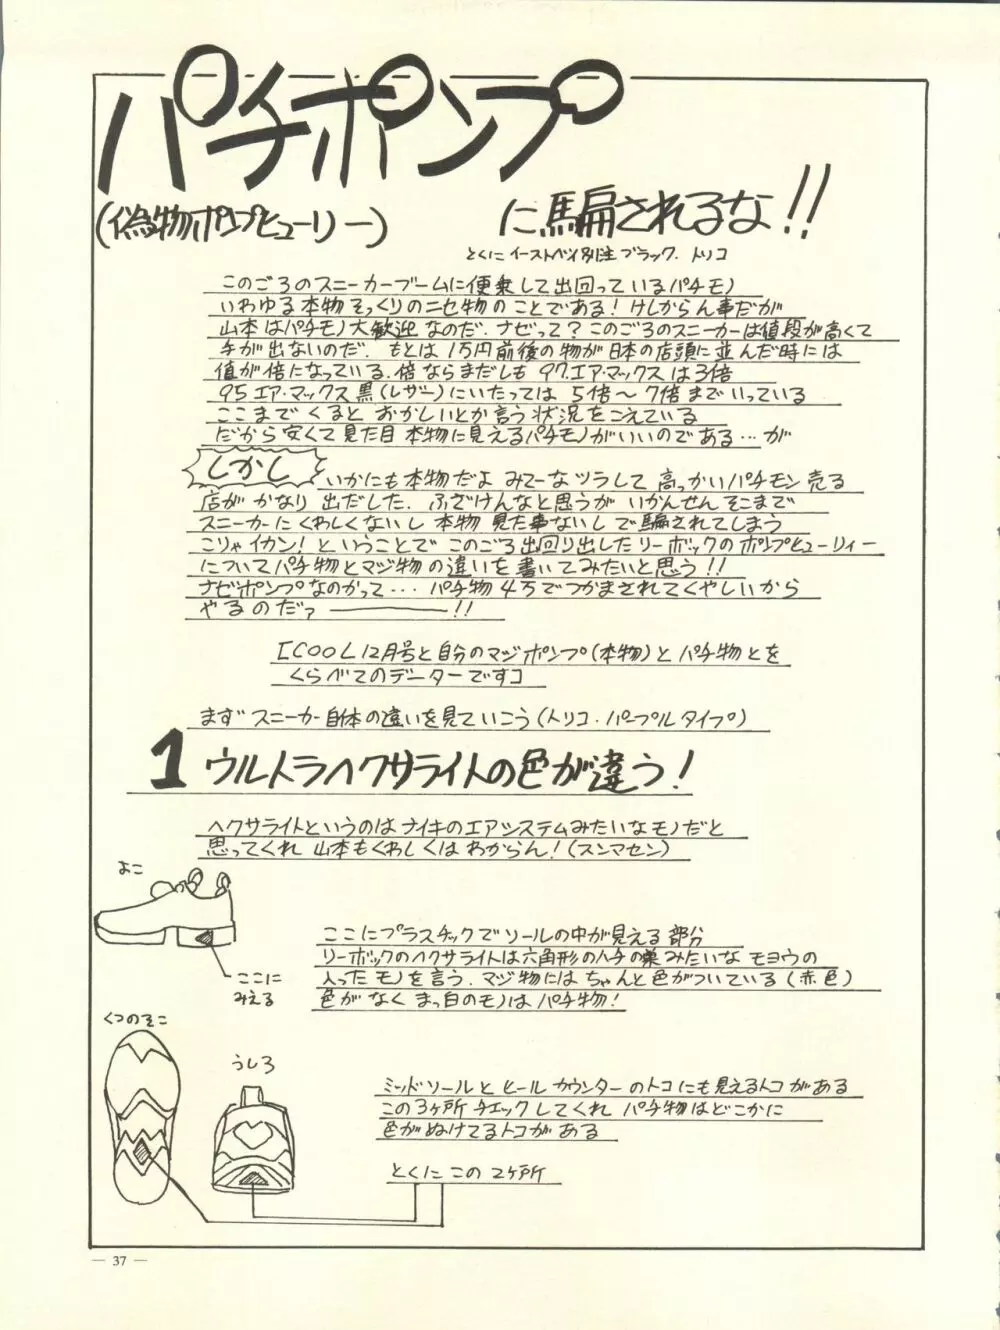 パチポンプ
(偽物ポンプヒューリー) に騙されるな!!
とくに イーストベイ別注 ブラック. トリコ
このごろのスニーカーブームに便乗して出回っているパチモノ
いわゆる本物そっくりのニセ物のことである!けしからん事だが
山本はパチモノ大歓迎なのだ.ナゼって?このごろのスニーカーは値段が高くて
手が出ないのだ. もとは1万円前後の物が日本の店頭に並んだ時には
値が倍になっている.倍ならまだしも 97エア・マックスは3倍
95エア・マックス黒(レザー)にいたっては 5倍〜7倍までいっている
ここまでくると おかしいとか言う状況をこえている
だから安くて見た目本物に見えるパチモノがいいのである…が
しかし いかにも本物だよ みてーなツラして 高っかいパチモン売る
店が かなり 出だした. ふざけんなと思うが いかんせん そこまで
スニーカーに くわしくないし 本物 見た事ないし で騙されてしまう
こりゃイカン! ということで このごろ出回り出したリーボックのポンプヒューリィー
についてパチ物とマジ物の違いを書いてみたいと思う!!
ナゼポンプなのかって… パチ物4万でつかまされてくやしいから
やるのだァ ――――!!
[COOL12月号と自分のマジポンプ(本物)とパチ物とを
くらべてのデーターですコ
まず スニーカー自体の違いを見ていこう(トリコ.パープルタイプ)
1 ウルトラヘクサライトの色が違う!
ヘクサライトというのはナイキのエアシステムみたいなモノだと
思ってくれ 山本もくわしくはわからん!(スンマセン)
よこ
ここに
みえる
ここにプラスチックでソールの中が見える部分
リーボックのヘクサライトは六角形のハチの巣みたいなモヨウの
入ったモノを言う. マジ物にはちゃんと色がついている(赤色)
色がなくまっ白のモノはパチ物!
くつのそこ
うしろ
ミッドソールとヒールカウンターのトコにも見えるトコがある
この3ヶ所チェックしてくれ パチ物はどこかに
色がぬけてるトコがある
とくに この 2ヶ所
— 37 —